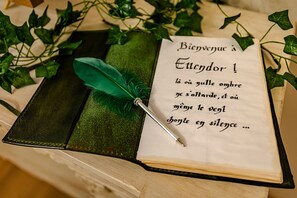 Bienvenue à
Ettendor !
là où nulle ombre
ne s'attarde, et où
même le vent
chante en silence ...